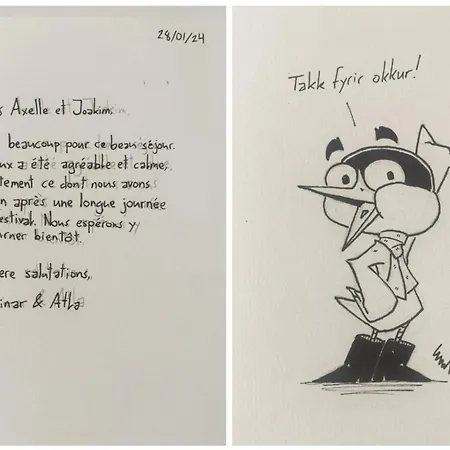 28/01/24
Axelle et Joakim,
beaucoup pour ce beau séjour.
a été agréable et calme,
ce dont nous avons
après une longue journée
Nous espérons y
bientôt.
salutations,
& Atla
Takk fyrir okkur!